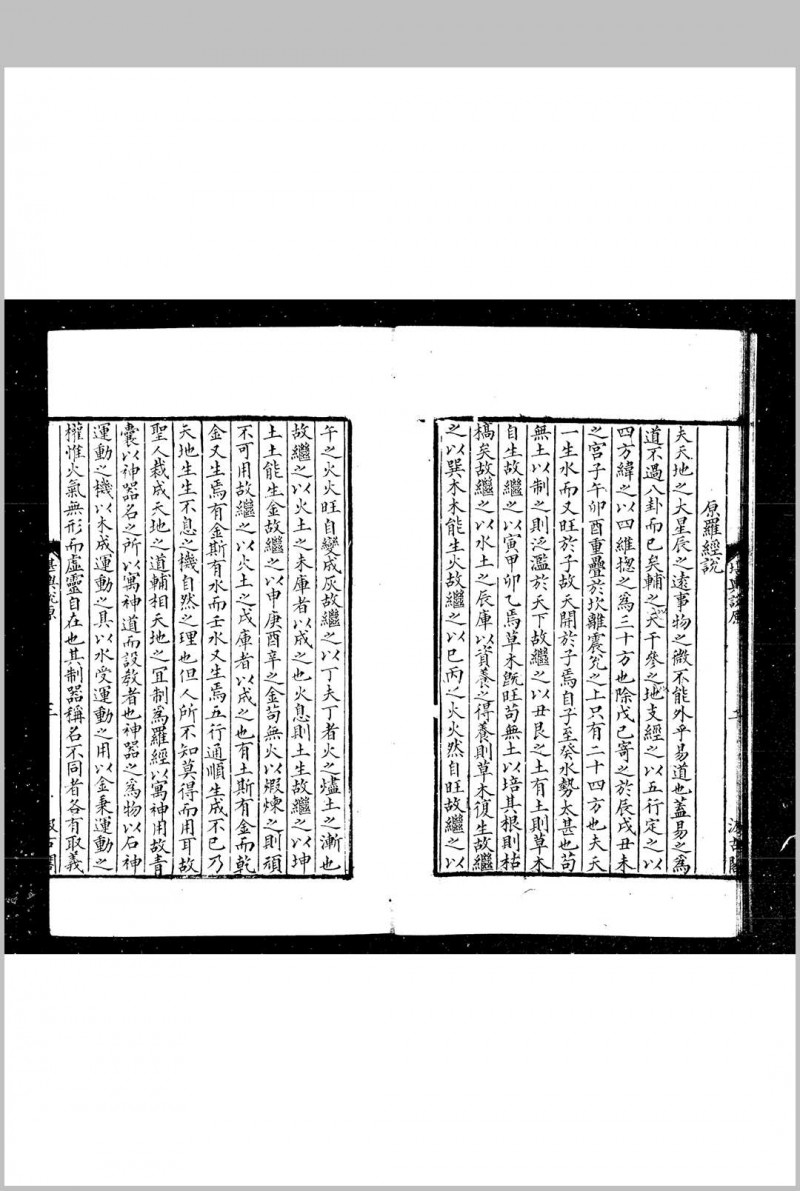 原羅經說
夫天地之大星辰之遠事物之微不能外乎易道也蓋易之為
道不過八卦而已矣輔之天干參之地支經之以五行定之以
四方緯之以四維揔之為三十方也除戊己寄之於辰戌丑未
之宮子午卯酉重疊於坎離震兊之上只有二十四方也夫天
一生水而又旺於子故天開於子焉自子至癸水勢太甚也苟
無土以制之則泛濫於天下故繼之以丑艮之土有土則草木
自生故繼之以寅甲卯乙焉草木旣旺苟無土以培其根則枯
槁矣故繼之以水土之辰庫以資養之得養則草木復生故繼
之以巽木木能生火故繼之以巳丙之火火然自旺故繼之以
午之火火旺自變成灰故繼之以丁夫丁者火之爐土之漸也
故繼之以火土之未庫者以成之也火息則土生故繼之以坤
土土能生金故繼之以申庚酉辛之金苟無火以煆煉之則頑
不可用故繼之以火土之戌庫者以成之也有土斯有金而乾
金又生焉有金斯有水而壬水又生焉五行通順生成不已乃
天地生生不息之機自然之理也但人所不知莫得而用耳故
聖人裁成天地之道輔相天地之宜制為羅經以寓神用故青
囊以神器名之所以寓神道而設教者也神器之為物以石神
運動之機以木成運動之具以水受運動之用以金秉運動之
權惟火氣無形而虛靈自在也其制器稱名不同者各有取義
堪輿說原
汲古閣